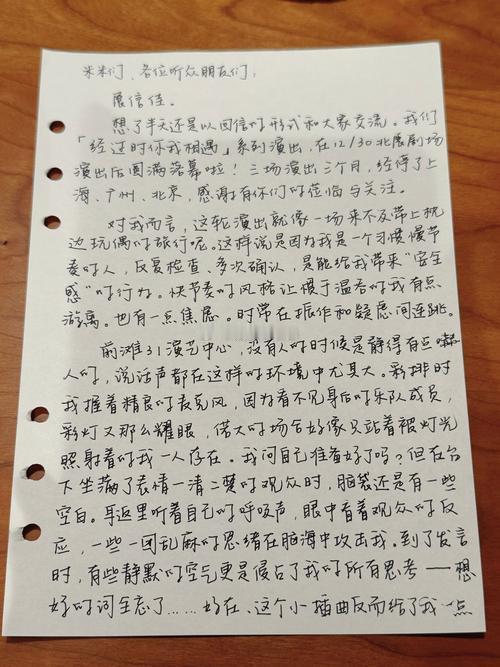 米米们、各位听众朋友们：
展信佳。
想了半天还是以回信的形式和大家交流。我们
「经过时你我相遇」系列演出，在12/30北展剧场
演出后圆满落幕啦！三场演出三个月，经停了上
海、广州、北京，感谢有你们的莅临与关注。
对我而言，这轮演出就像一场来不及带上枕
边玩偶的旅行呢。这样说是因为我是一个习惯慢节
奏的人，反复检查、多次确认，是能给我带来“安全
感”的行为。快节奏的风格让惯于温吞的我有点
游离。也有一点焦虑。时常在振作和疑虑间连跳。
前滩31演艺中心，没有人的时候是静得有点嚇
人的，说话声都在这样的环境中尤其大。彩排时
我握着精良的麦克风，因为看不见身后的乐队成员，
彩灯又那么耀眼，偌大的场合好像只站着被灯光
照射着的我一人存在。我问自己准备好了吗？但在台
下坐满了表情一清二楚的观众时，脑袋还是有一些
空白。耳返里听着自己的呼吸声，眼中看着观众的反
应，一些一团乱麻的思绪在脑海中攻击我。到了发言
时，有些静默的空气更是侵占了我的所有思考——想
好的词全忘了……好在、这个小插曲反而给了我一点